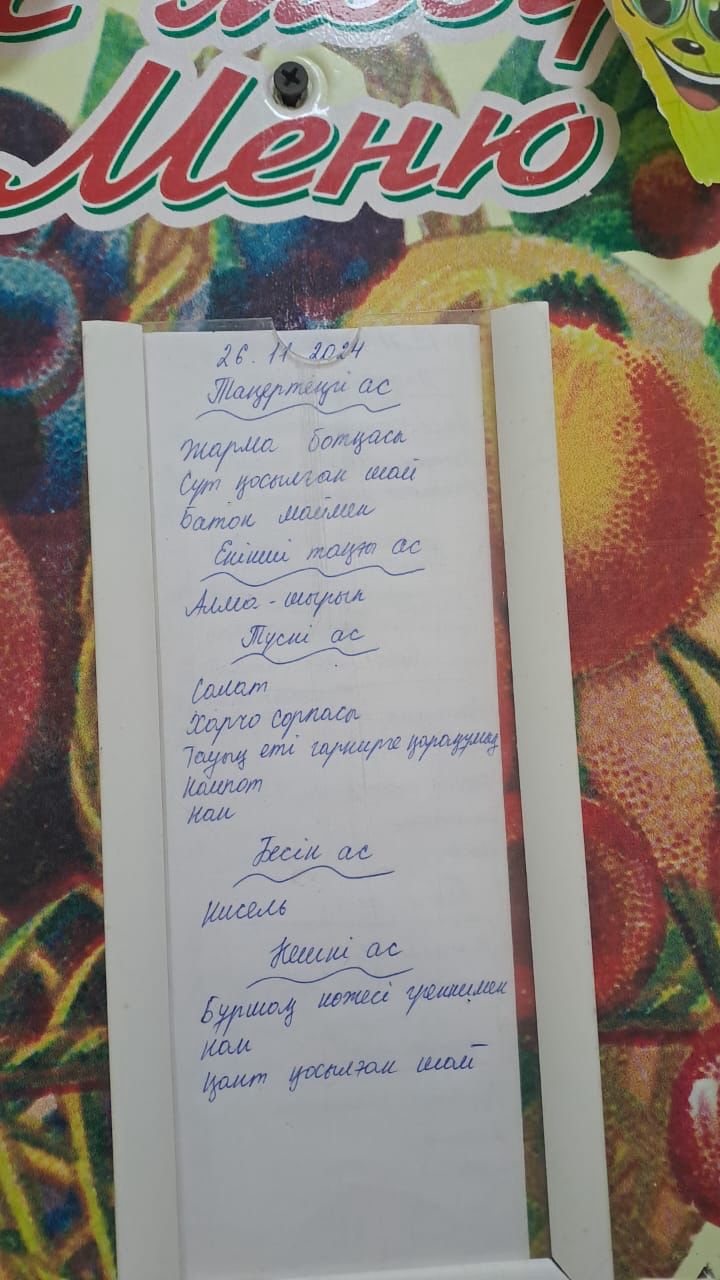 Меню
26.11 2024
Таңертеңгі ас
Жарма ботқасы
Сүт қосылған шай
Батон маймен
Екінші таңғы ас
Алма-шырын
Түскі ас
Салат
Харчо сорпасы
Тауық еті гарнирге қарақұмық
Компот
Нан
Бесін ас
Кисель
Кешкі ас
Бұршақ көжесі гренкимен
Нан
Қант қосылған шай